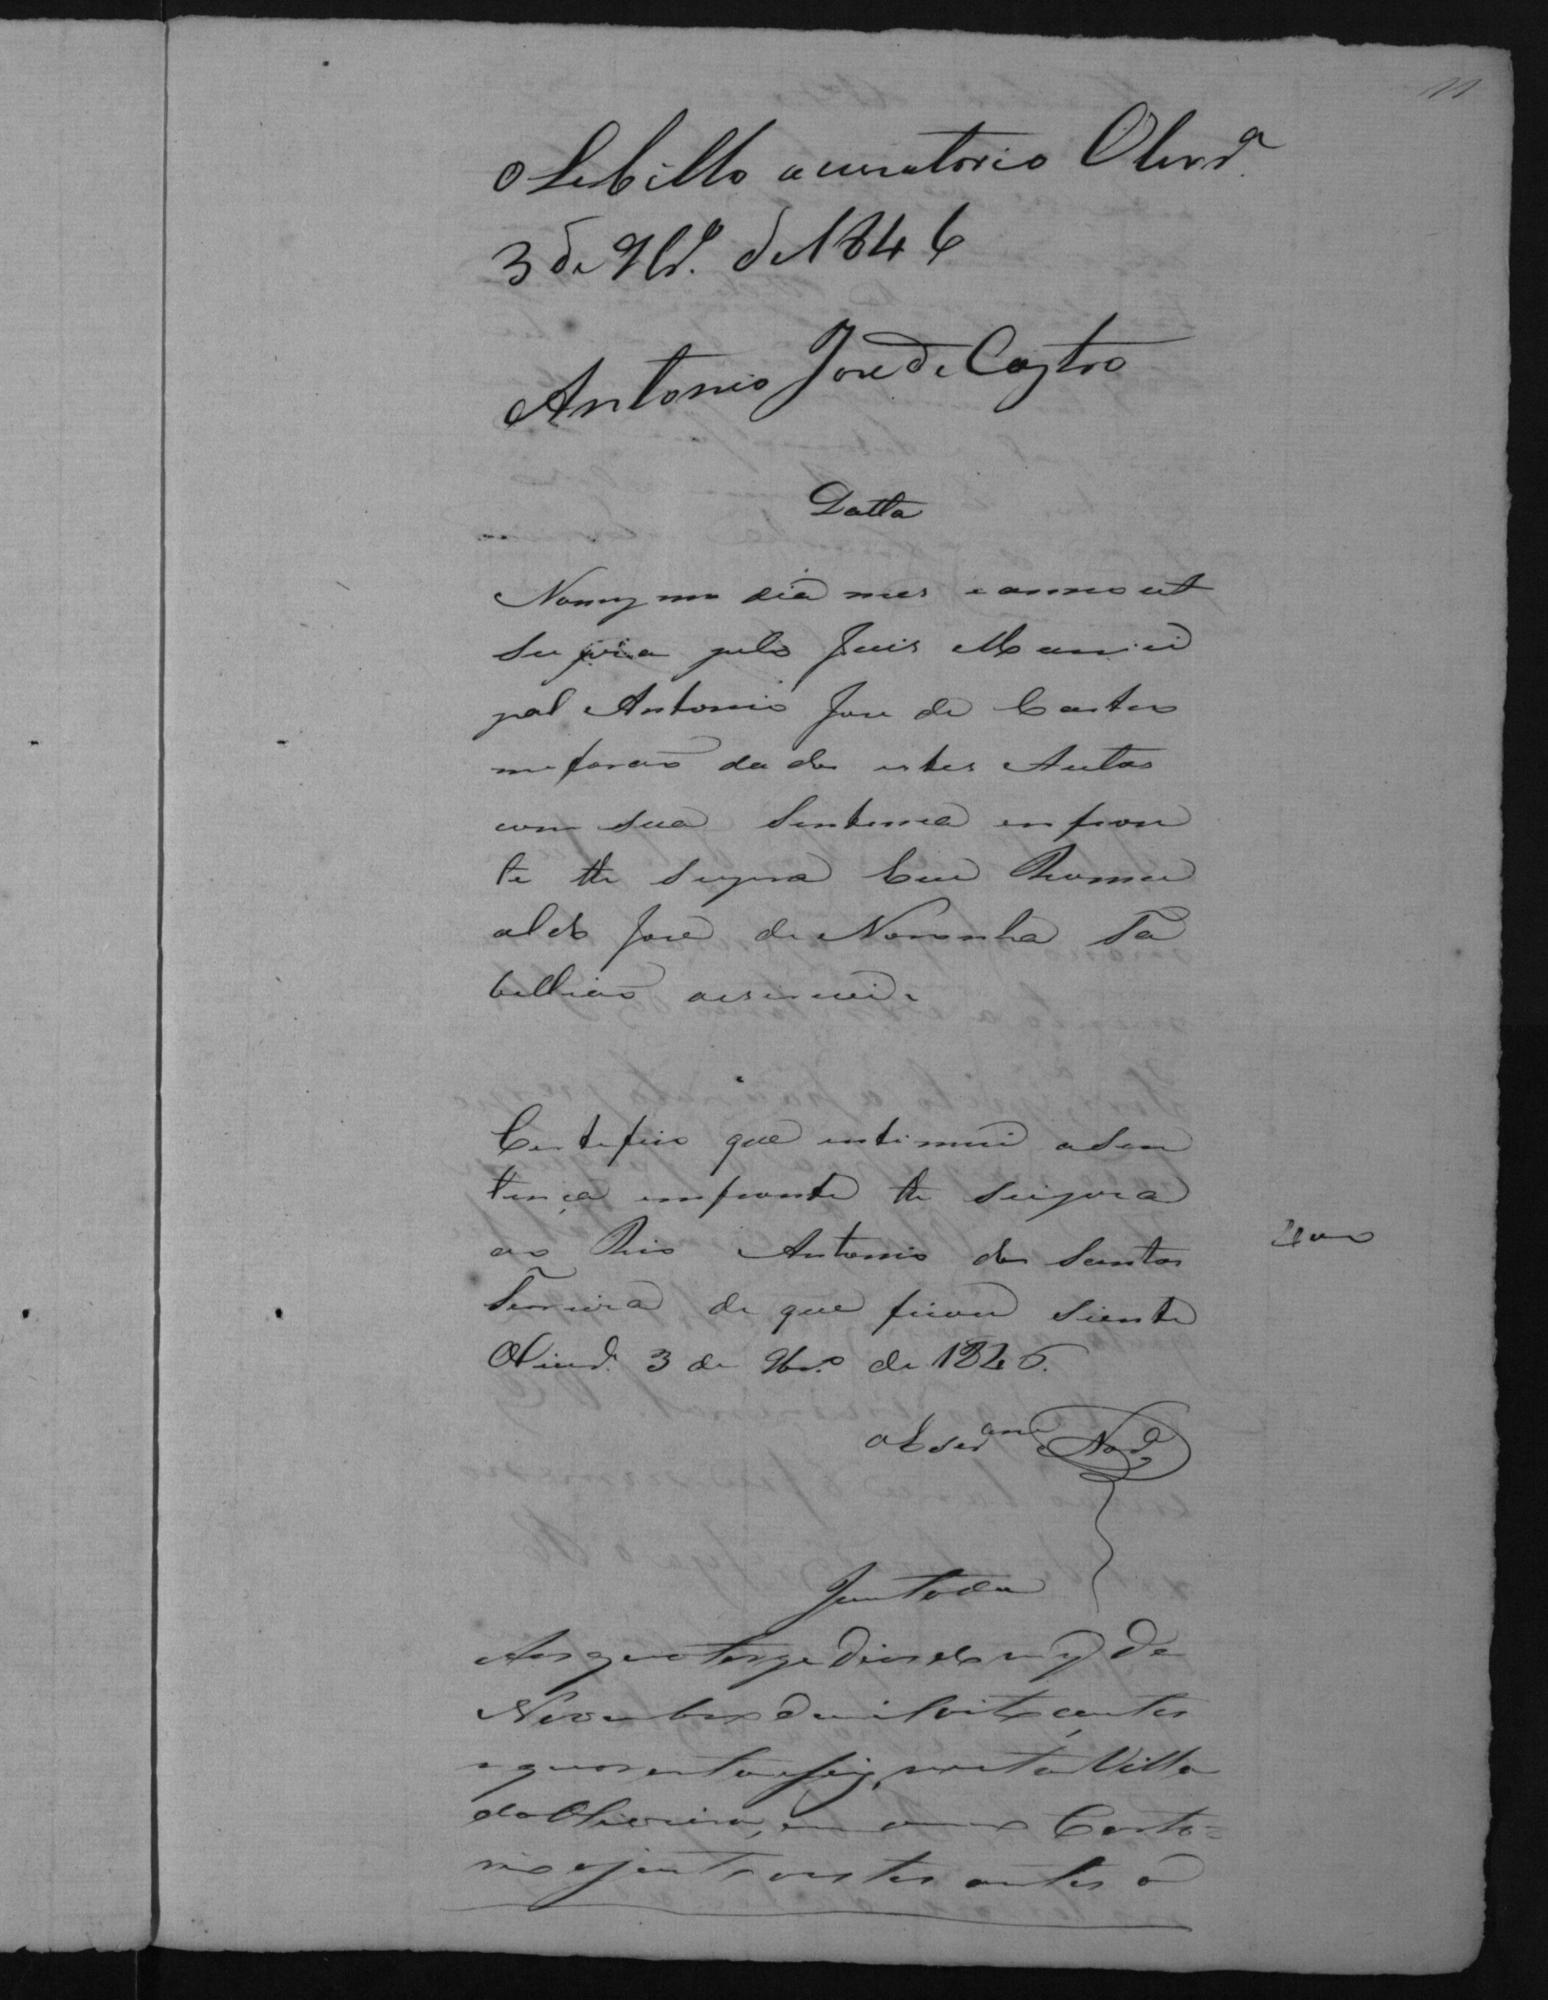 11
o Libillo acuzatorio Olivrª
3 de 9brº. de 1846
Antonio Jose de Castro
Datta
No mesmo dia mes e anno ut
Supra pelo Juis Munici
pal Antonio Jose de Castro
me forão dados estes Autos
com sua Sentença enfron
te te Supra Eu Romu
aldo José de Noronha Ta
bellião escrevi.
Certefico que intimei a Sen
tença emfronte te Supra
ao Reo Antonio dos Santos
Ferreira de que ficou Siente
Olivrª. 3 de 9brº de 1846.
Noraª
Juntada
Aos quatorze dias do mez de
Novembro de mil oito centos
e quarenta e seis, nesta Villa
da Oliveira, em o meu Carto=
rio ajunto a estes autos o